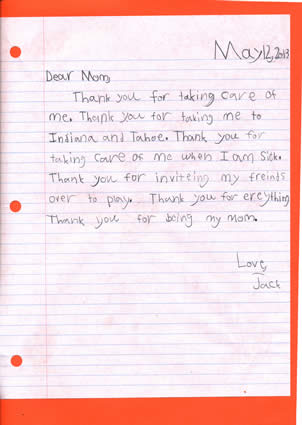 May 12, 2013
Dear Mom,
Thank you for taking care of
me. Thank you for taking me to
Indiana and Tahoe. Thank you for
taking care of me when I am sick.
Thank you for inviteing my freinds
over to play. Thank you for ereything
Thank you for being my mom.
Love,
Jack